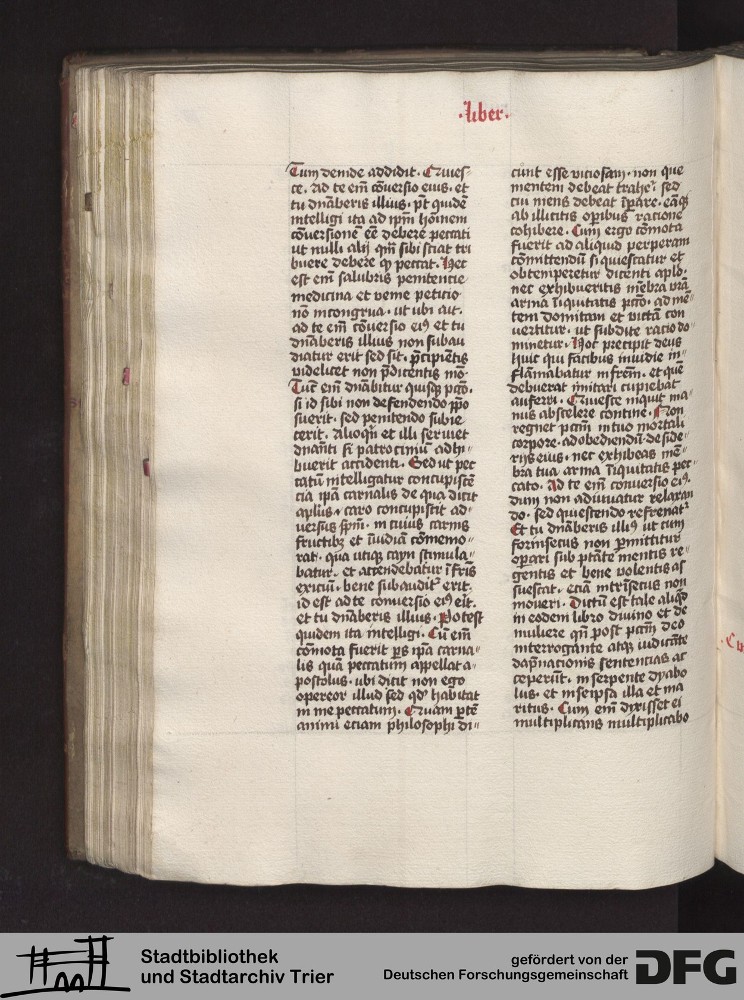 ·liber·
Cum deinde addidit. Quies-
ce. Ad te em̄ cōversio eius. et
tu dn̄aberis illius. pt̄ quidē
intelligi ita ad ip̄m hōinem
cōversionē eē debere peccati
ut nulli alij qm̄ sibi sciat tri
buere debere qp peccat. Hec
est em̄ salubris penitencie
medicina et venie peticio
nō incongrua. ut ubi ait.
ad te em̄ cōversio eiꝰ et tu
dn̄aberis illius non subau
diatur erit sed sit. p̄cipiētis
videlicet non p̄dicentis mō.
Tūc em̄ dn̄abitur quisqꝫ pctō.
si id sibi non defendendo p̄po
suerit. sed penitendo subie
cerit. Alioqn̄ et illi serviet
dnān̄ti si patrociniū adhi"
buerit accidenti. Sed ut pec
catū intelligatur concupiscē
cia ip̄a carnalis de qua dicit
aplūs. caro concupiscit ad"
versus sp̄m. in cuius carnis
fructibꝫ et īvidiā cōmemo"
rat. qua utiqꝫ cayn stimula"
batur. et accendebatur ī fr̄is
exiciū. bene subauditꝛ erit.
id est ad te conversio eiꝰ erit.
et tu dn̄aberis illius. Potest
quidem ita intelligi. Cū em̄
cōmota fuerit ꝑs ip̄a carna"
lis quā peccatum appellat a"
postolus. ubi dicit non ego
opereor illud sed qd' habitat
in me peccatum. Quam ꝑtē
animi eciam philosophi di"
cunt esse viciosam. non que
mentem debeat trahe'. sed
cui mens debeat īpare. eāqꝫ
ab illicitis opibus racione
cohibere. Cum ergo cōmota
fuerit ad aliquid perperam
cōmittendū si quiescatur et
obtemperetur dicenti apl̄o.
nec exhibueritis mēbra vr̄a
arma īiquitatis pctō. ad mē"
tem domitam et victā con
vertitur. ut subdite racio do"
minetur. Hoc precipit deus
huic qui facibus invidie in"
flāmabatur in frēm. et quē
debuerat imitari cupiebat
auferri. Quiesce inquit ma"
nus abscelere contine. Non
regnet pctm̄ in tuo mortali
corpore. ad obediendū deside"
rijs eius. nec exhibeas mē"
bra tua arma īiquitatis pec"
cato. Ad te em̄ conversio eiꝰ.
dum non adiuvatur relaxan
do. sed quiescendo refrenatꝛ
Et tu dn̄aberis illiꝰ ut cum
forinsecus non ꝑmittitur
opari sub ptāte mentis re"
gentis et bene volentis as
suescat. eciā intrīsecus non
moveri. Dictū est tale aliqd
in eodem libro divino et de
muliere qn̄ post pctm̄ deo
interrogante atqꝫ iudicāte
dāpnacionis sentencias ac
ceperūt. in serpente dyabo
lus. et in seipsa illa et ma
ritus. Cum em̄ dixisset ei
multiplicans multiplicabo
Stadtbibliothek
und Stadtarchiv Trier
gefördert von der
Deutschen Forschungsgemeinschaft
DFG